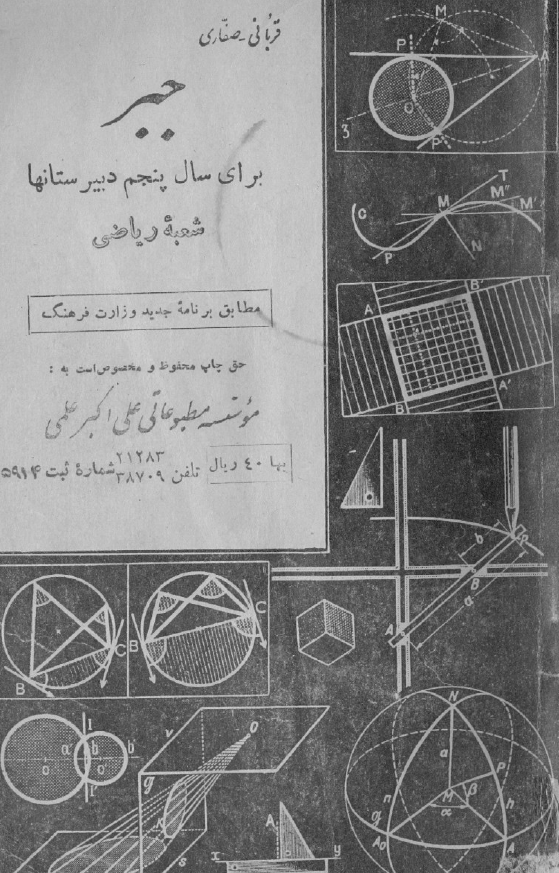 قربانی-صفاری
جبر
برای سال پنجم دبیرستانها
شعبهٔ ریاضی
مطابق برنامهٔ جدید وزارت فرهنگ
حق چاپ محفوظ و مخصوص است به :
مؤسسه مطبوعاتی علی اکبر علمی
بها ٤٠ ریال تلفن ۲۱۲۸۳ ۳۸۷۰۹ شمارهٔ ثبت ۵۹۱۴
M
P A
O
3
P'
T
M M'' M'
C
P N
A B'
B A'
b P
B
a
A
B C
B C
A
1
a b b
O O'
1
v O
g
s
A
x y
N
a P
n M β h
g α
A₀ A